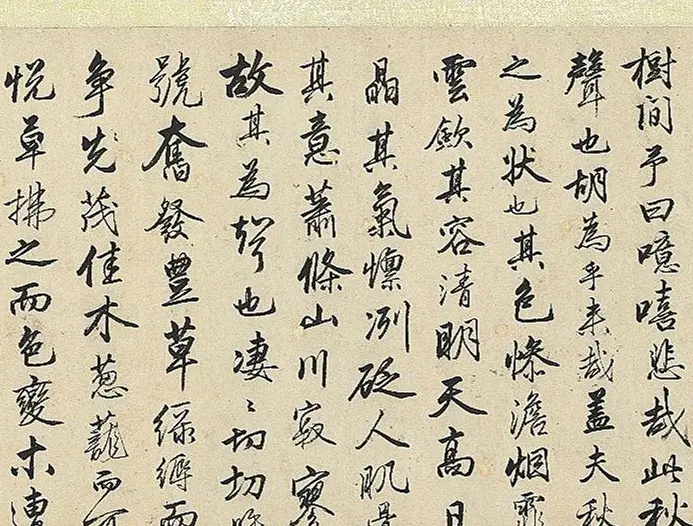 樹間予曰噫嘻悲哉此秋
聲也胡為乎来哉盖夫秋
之為状也其色惨澹烟霏
雲歛其容清明天高日
晶其氣慄冽砭人肌骨
其意蕭條山川寂寥
故其為聲也凄〻切切
號奮發豊草緑縟而
争先茂佳木葱蘢而可
悦草拂之而色變木遭